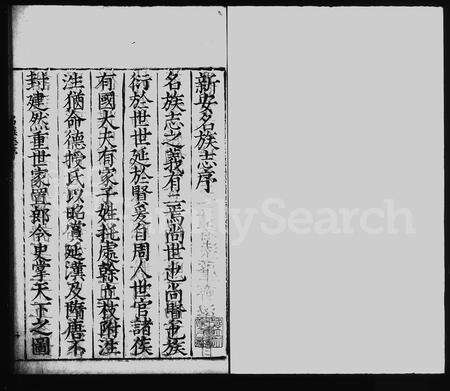 新安名族志序
名族志之義有二焉尚世也尚賢也族
衍於世世延於賢爰自周人世官諸侯
有國大夫有家子姓托處幹立枝附注
注猶命德授氏以昭賞延漢及隋唐不
封建然重世家置郎令史掌天下之圖
FamilySearch